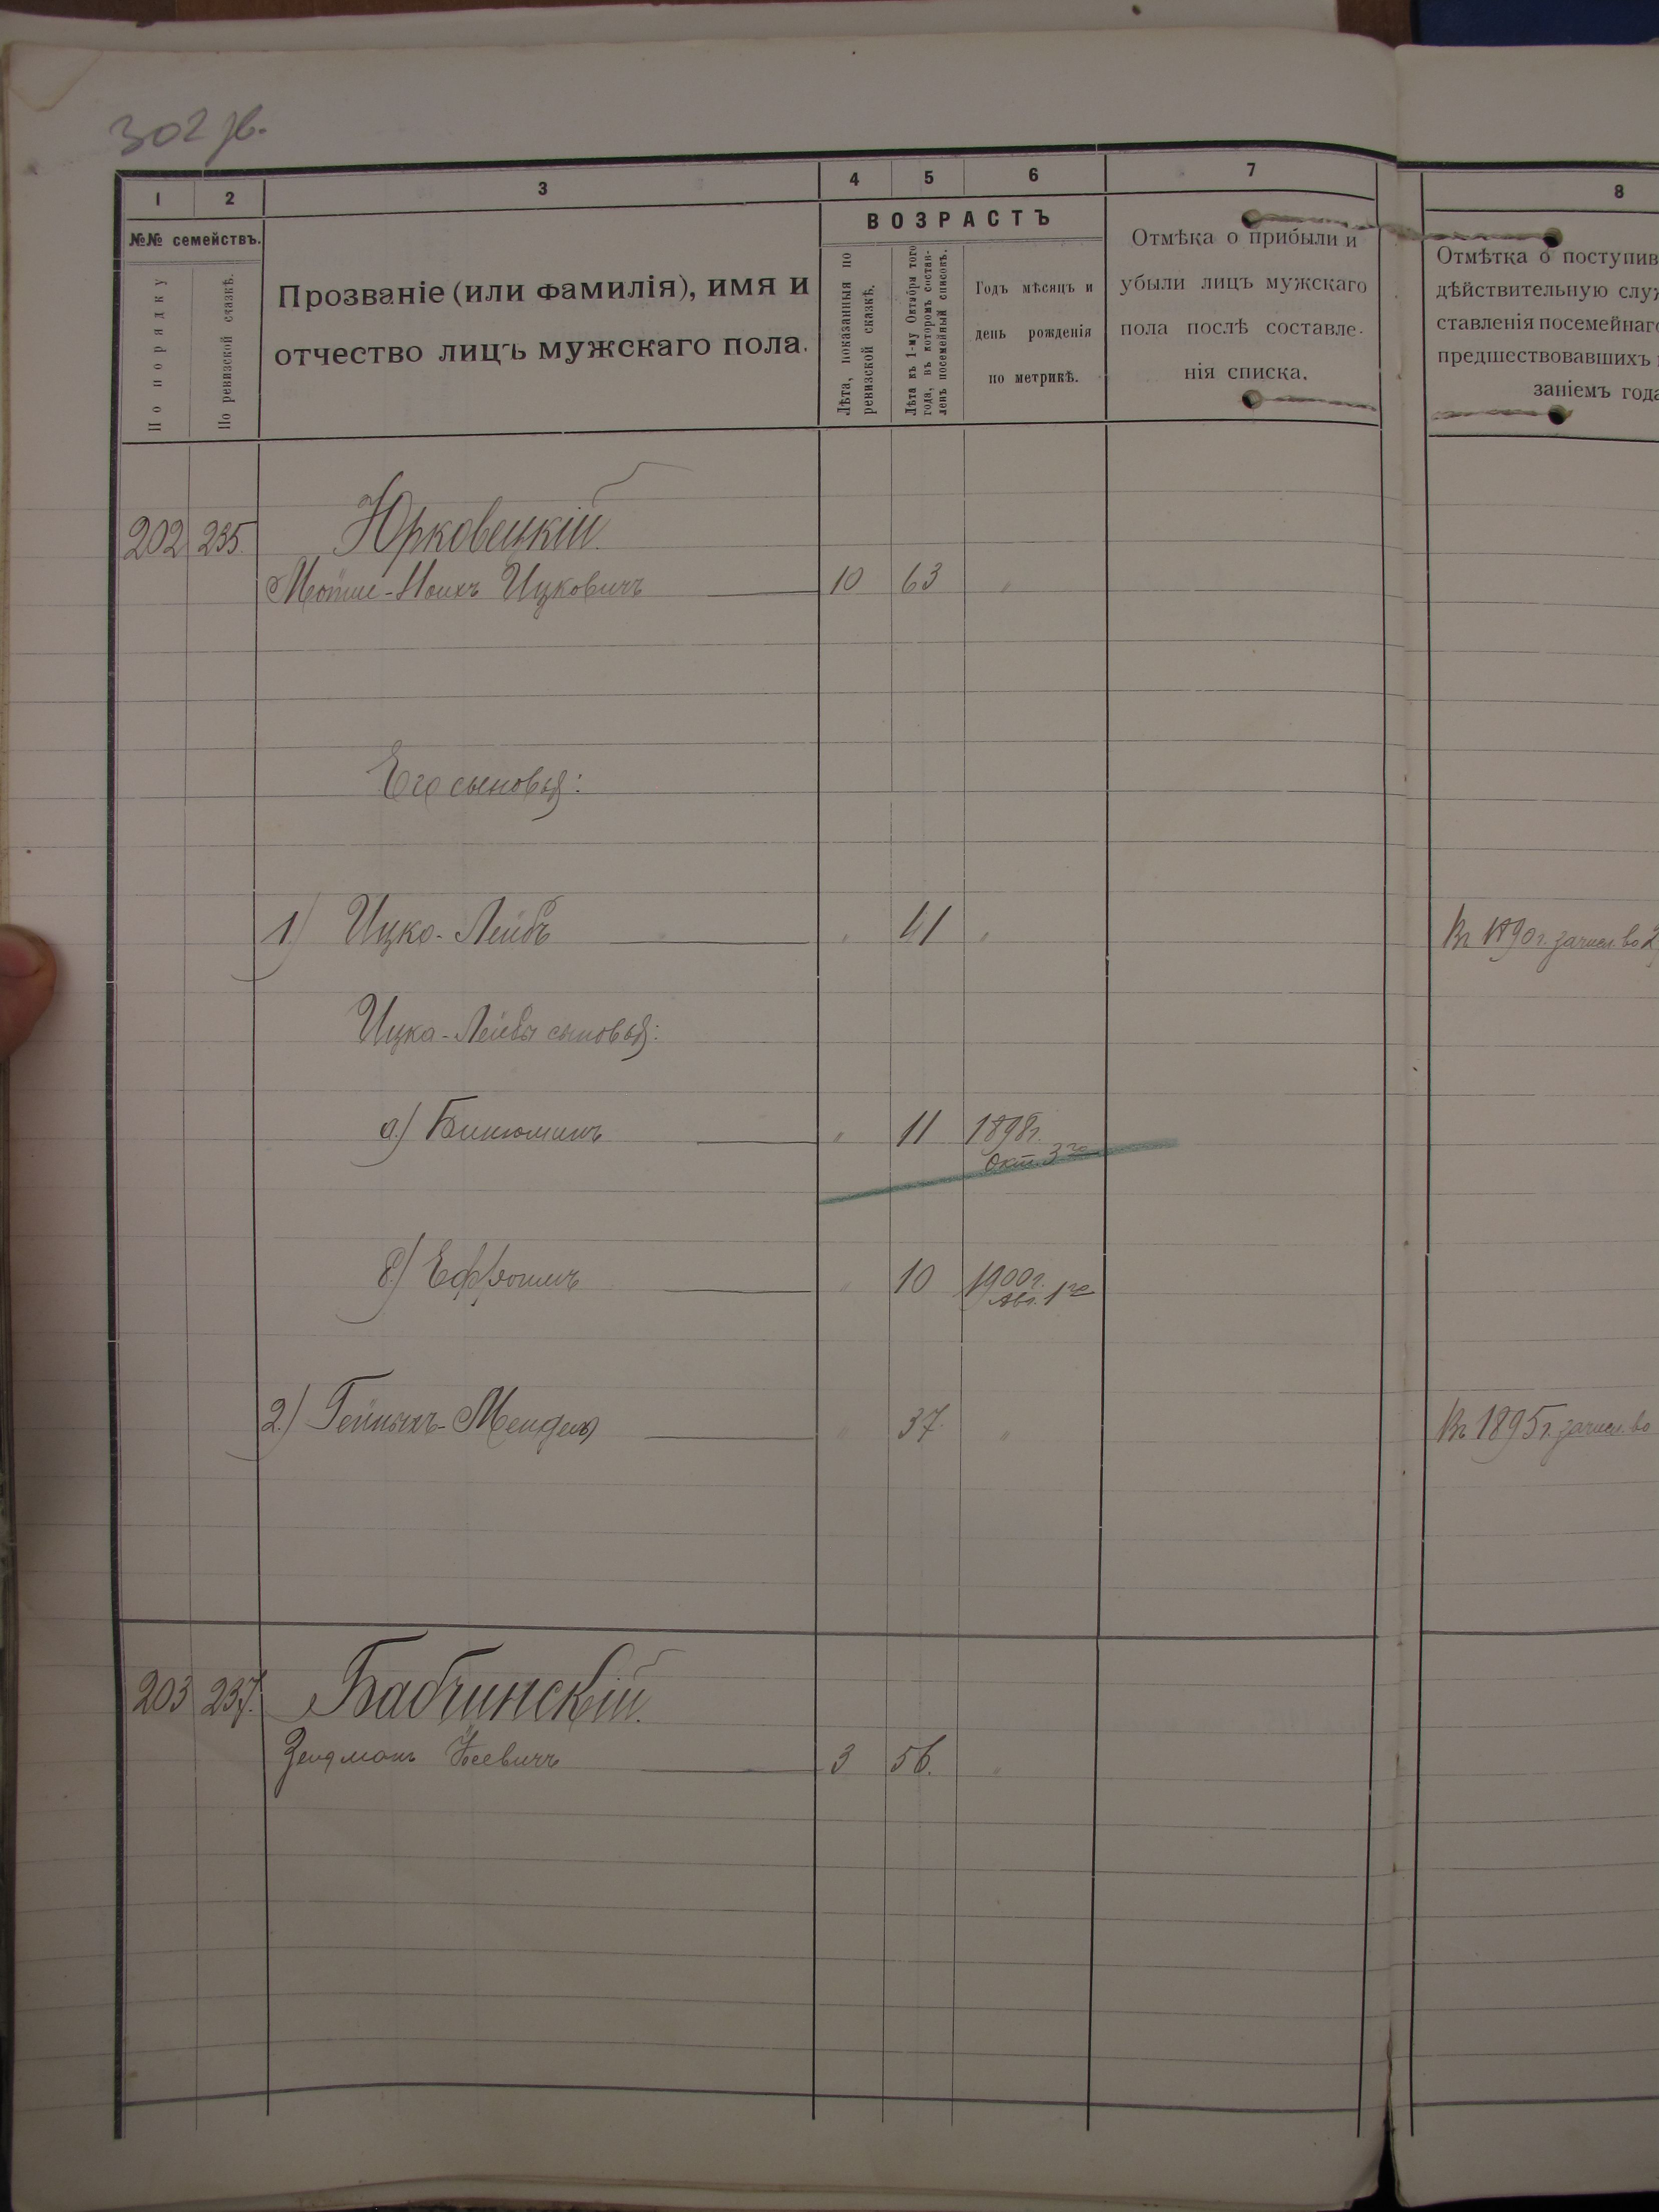 302 зв.
1 2 3 4 5 6 7 8
№№ семействъ.
По порядку
По ревизской сказкѣ.
Прозваніе (или фамилія), имя и
отчество лицъ мужскаго пола.
ВОЗРАСТЪ
Лѣта, показанныя по
ревизской сказкѣ.
Лѣта къ 1-му Октября того
года, въ которомъ состав-
ленъ посемейный списокъ.
Годъ мѣсяцъ и
день рожденія
по метрикѣ.
Отмѣка о прибыли и
убыли лицъ мужскаго
пола послѣ составле-
нія списка.
Отмѣтка о поступив
дѣйствительную служ
ставленія посемейнаго
предшествовавшихъ
заніемъ года
202 235 Юрковецкій.
Мошке-Ноихъ Ицковичъ 10 63 "
Его сыновья:
1) Ицко-Лейбъ " 41 " Въ 1890г. зачисл. во 2
Ицка-Лейбы сыновья:
а) Биньюминъ " 11 1898г.
Окт. 3го
б) Ефроимъ " 10 1900г.
Авг. 1го
2) Гейнихъ-Мендель " 37. " Въ 1895г. зачисл. во
203 237. Бабчинскій.
Зейдманъ 3 56. "